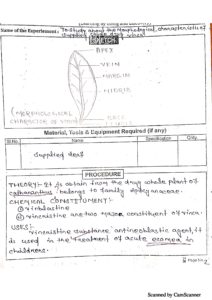 (Learning by Doing and Discovery)
Name of the Experiement: To study about the Morphological characteristics of
SKETCH
APEX
VEIN
MARGIN
MIDRIB
(MORPHOLOGICAL
CHARACTER OF VINCA)
BASE
Material, Tools & Equipment Required (if any)
Sl.No. Name Specification Qnty.
Supplied leaf
PROCEDURE
THEORY:- It is obtain from the dry whole plant of
catharanthus belongs to family apocynaceae.
CHEMICAL CONSTITUMENT:-
① vinblastine
② vincristine are two major constituent of vinca.
USES:-
vincristine substance antineoplastic agent, it
is used in the treatment of acute in
childrens.
Scanned by CamScanner